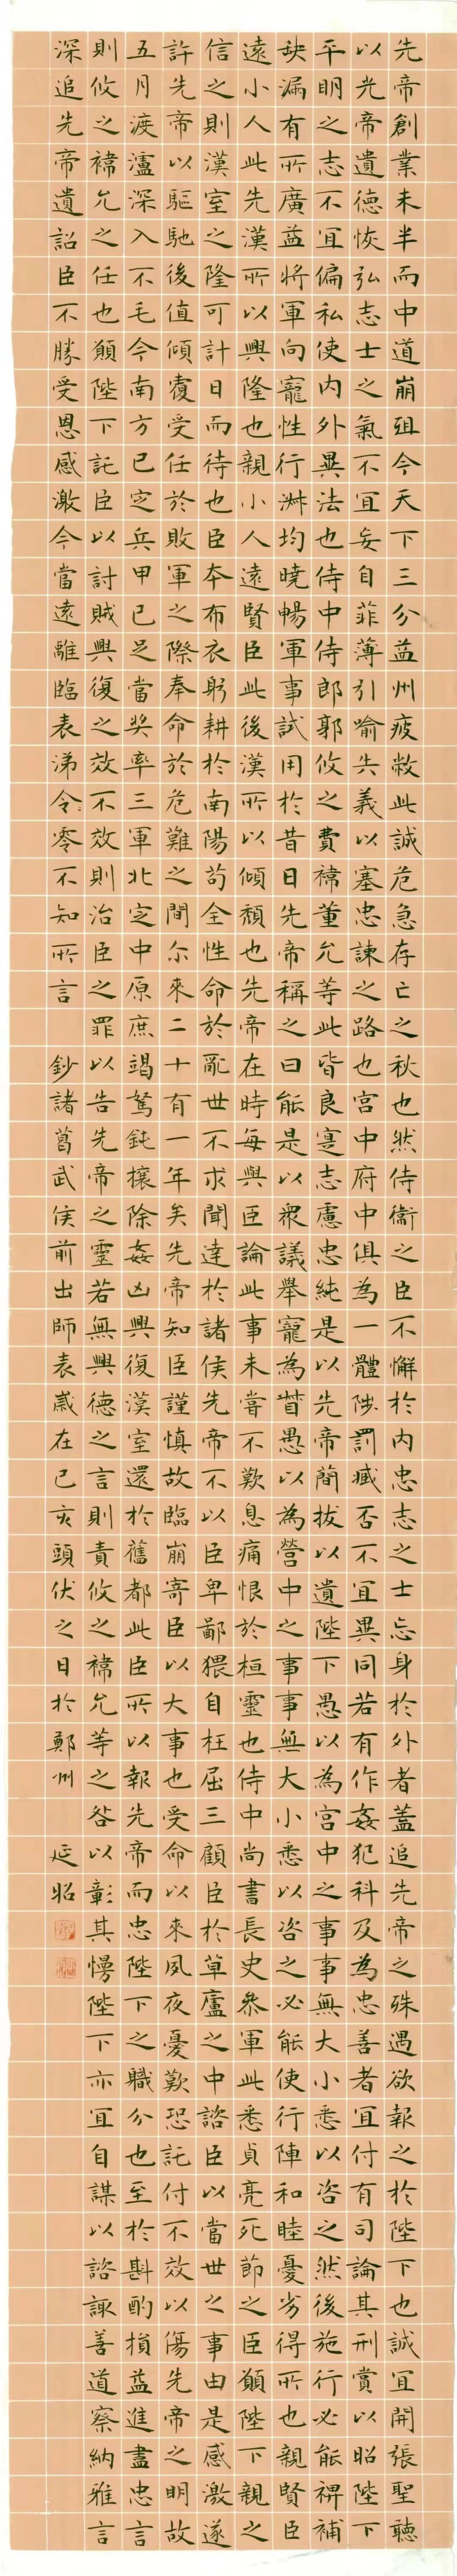 先帝創業未半而中道崩殂今天下三分益州疲敝此誠危急存亡之秋也然侍衞之臣不懈於內忠志之士忘身於外者蓋追先帝之殊遇欲報之於陛下也誠宜開張聖聽
以光帝遺德恢弘志士之氣不宜妄自菲薄引喻失義以塞忠諫之路也宮中府中俱為一體陟罰臧否不宜異同若有作姦犯科及為忠善者宜付有司論其刑賞以昭陛下
平明之志不宜偏私使內外異法也侍中侍郎郭攸之費禕董允等此皆良寔志慮忠純是以先帝簡拔以遺陛下愚以為宮中之事事無大小悉以咨之然後施行必能裨補
缺漏有所廣益將軍向寵性行淑均曉暢軍事試用於昔日先帝稱之曰能是以眾議舉寵為督愚以為營中之事事無大小悉以咨之必能使行陣和睦憂劣得所也親賢臣
遠小人此先漢所以興隆也親小人遠賢臣此後漢所以傾頹也先帝在時每與臣論此事未嘗不歎息痛恨於桓靈也侍中尚書長史參軍此悉貞亮死節之臣願陛下親之
信之則漢室之隆可計日而待也臣本布衣躬耕於南陽苟全性命於亂世不求聞達於諸侯先帝不以臣卑鄙猥自枉屈三顧臣於草廬之中諮臣以當世之事由是感激遂
許先帝以驅馳後值傾覆受任於敗軍之際奉命於危難之間尔來二十有一年矣先帝知臣謹慎故臨崩寄臣以大事也受命以來夙夜憂歎恐託付不效以傷先帝之明故
五月渡瀘深入不毛今南方已定兵甲已足當奖率三軍北定中原庶竭駑鈍攘除姦凶興復漢室還於舊都此臣所以報先帝而忠陛下之職分也至於斟酌損益進盡忠言
則攸之禕允之任也願陛下託臣以討賊興復之效不效則治臣之罪以告先帝之靈若無興德之言則責攸之禕允等之咎以彰其慢陛下亦宜自謀以諮諏善道察納雅言
深追先帝遺詔臣不勝受恩感激今當遠離臨表涕令零不知所言 鈔諸葛武侯前出師表歲在己亥頭伏之日於鄭州 延昭